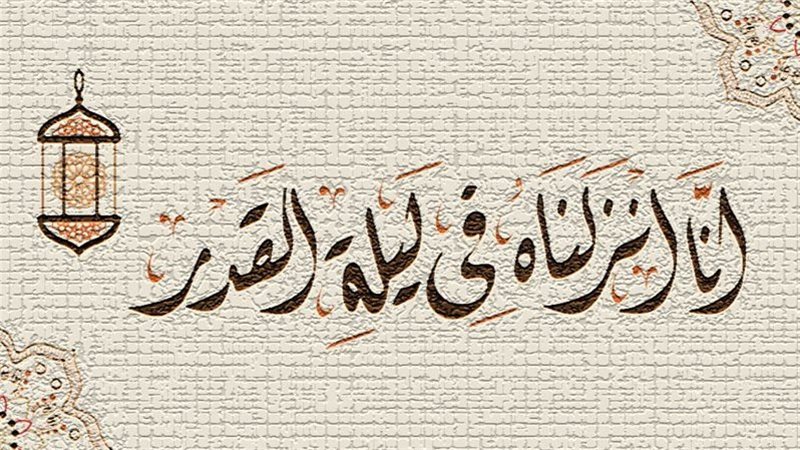 انَّا انزَلنَاهُ فِي لَيلَةِ القَدر